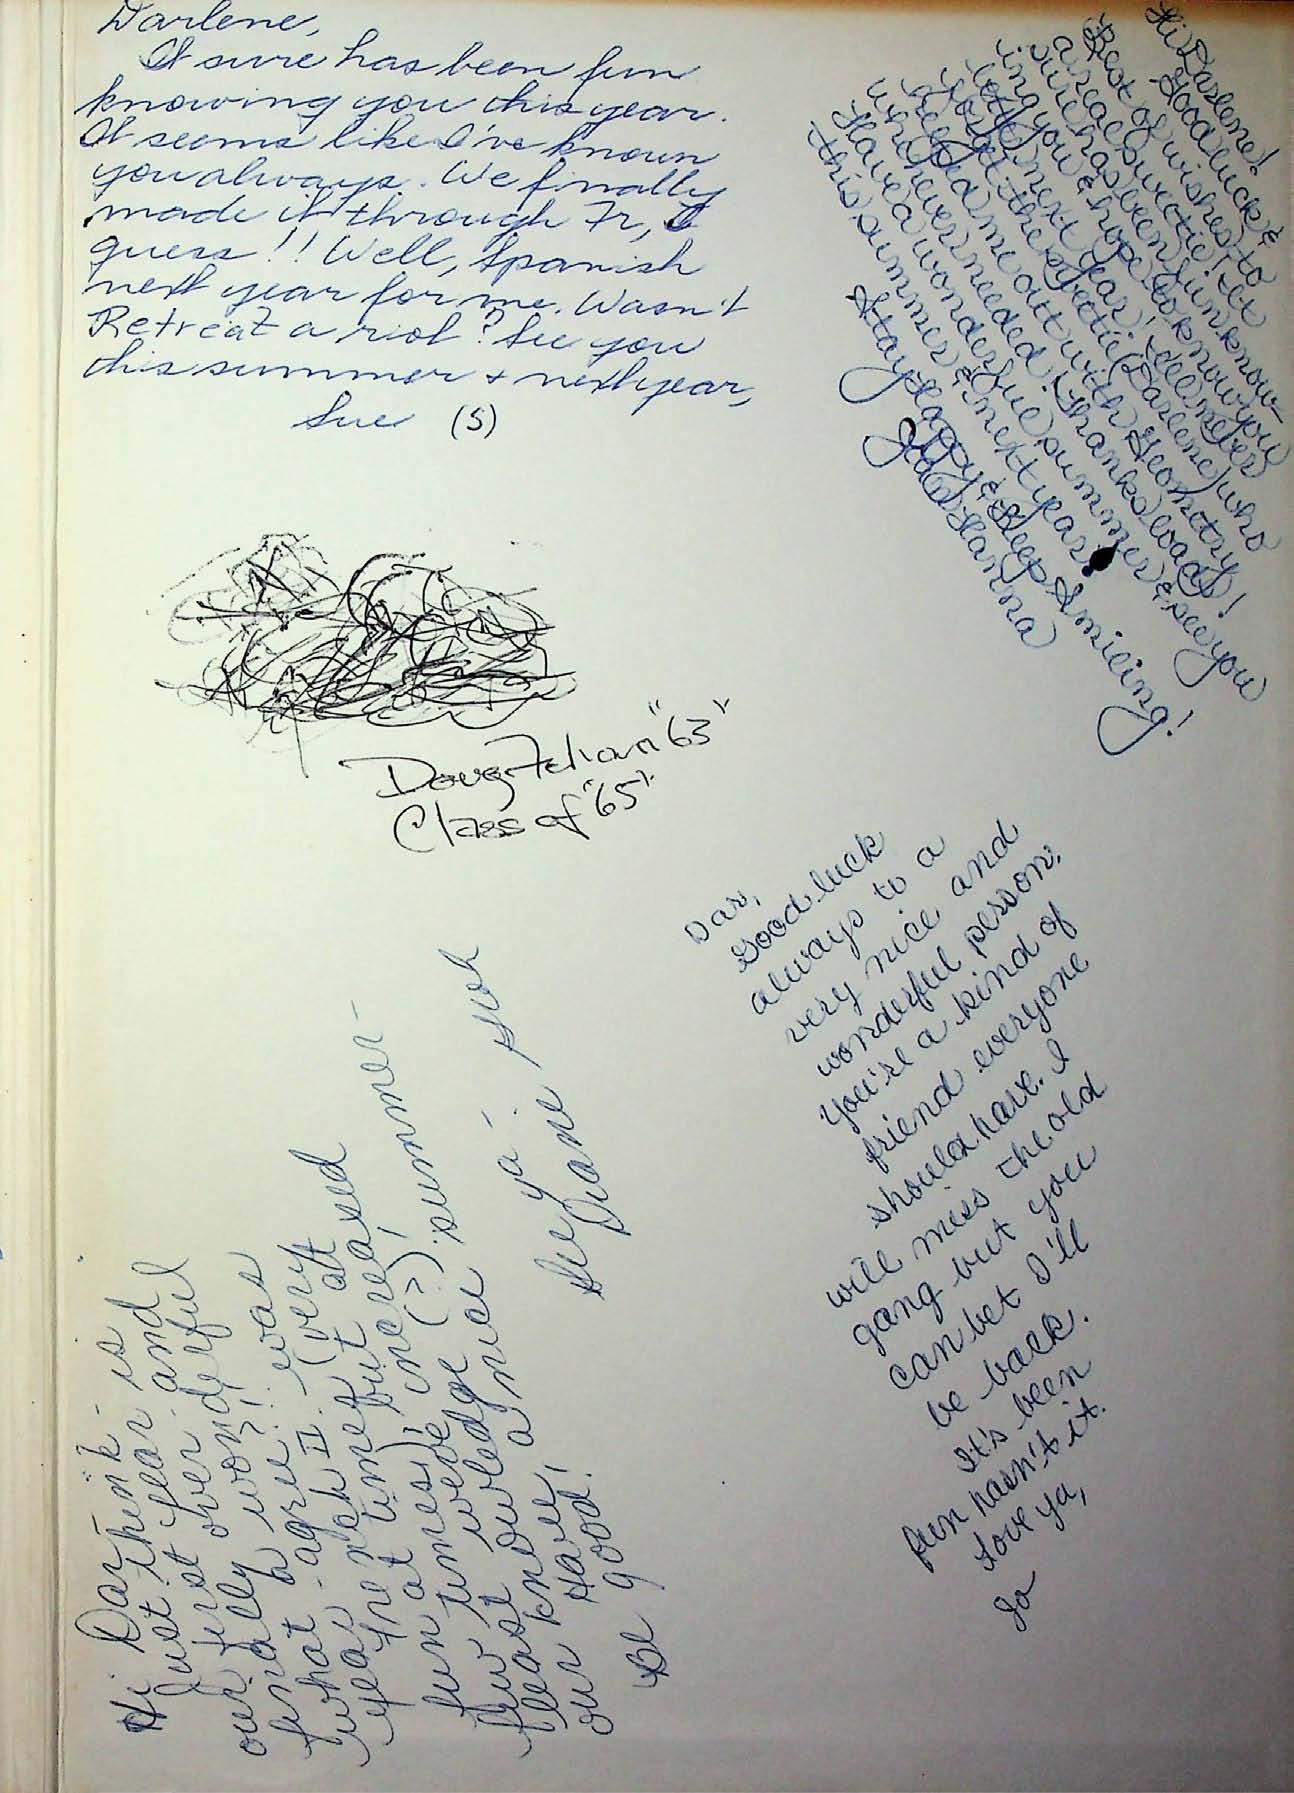 Darlene,
It sure has been fun
knowing you this year.
It seems like I've known
you always. We finally
made it through Fr, I
guess!! Well, Spanish
next year for me. Wasn't
Retreat a riot? See you
this summer + next year,
Sue (S)
Hi Darlene!
Good luck &
Best of wishes to
a real sweetie! It
sure has been fun know-
ing you & hope to know you
better next year! I'll never
forget the sweetie (Darlene) who
helped me out with Geometry
whenever needed! Thanks loads!
Have a wonderful summer & see you
this summer & next year.
Stay Happy & Keep Smiling!
Hanna
Doug "63"
Class of "65"
Dar,
Good luck
always to a
very nice and
wonderful person.
You're a kind of
friend everyone
should have. I
will miss the old
gang but you
can bet I'll
be back.
It's been
fun hasn't it.
Love ya,
Jo
Hi Dar-
Just think - is
our first year and
finally over
what a wonderful
year - agree? was
fun at times), increased
our knowledge (?)!
please have a nice summer -
Have
Be good!
See ya -
Diane